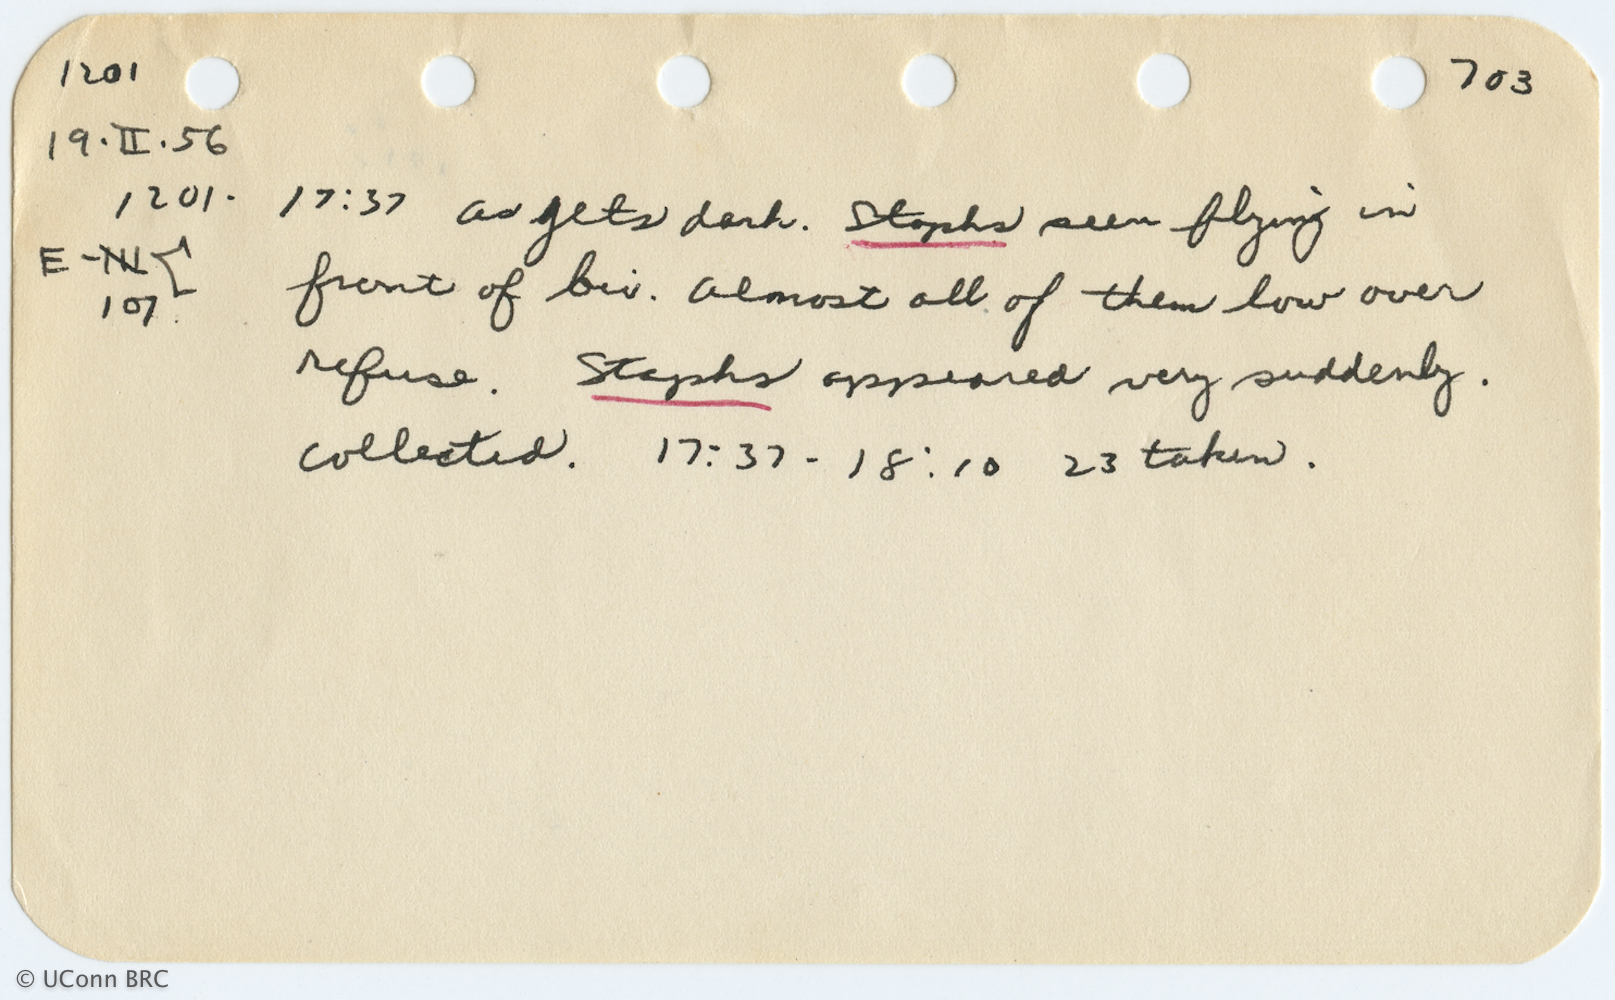 1201 703
19.II.56
1201. 17:37 as gets dark. Staphs seen flying in
E-
107. front of biv. Almost all of them low over
refuse. Staphs appeared very suddenly.
collected. 17:37-18:10 23 taken.
© UConn BRC